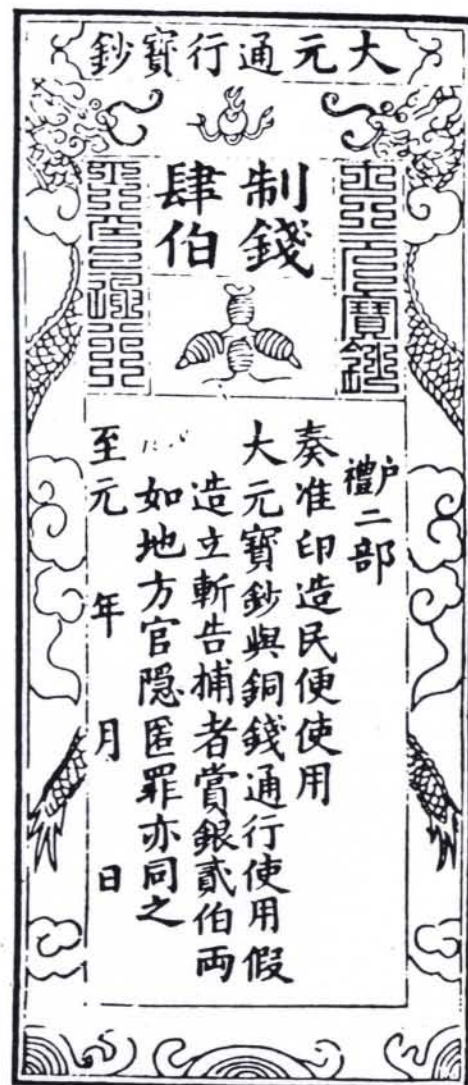 大元通行寳鈔
制錢
肆伯
户禮二部
奏准印造民便使用
大元寳鈔與銅錢通行使用假
造立斬告捕者賞銀貳伯両
如地方官隠匿罪亦同之
至元　年　月　日